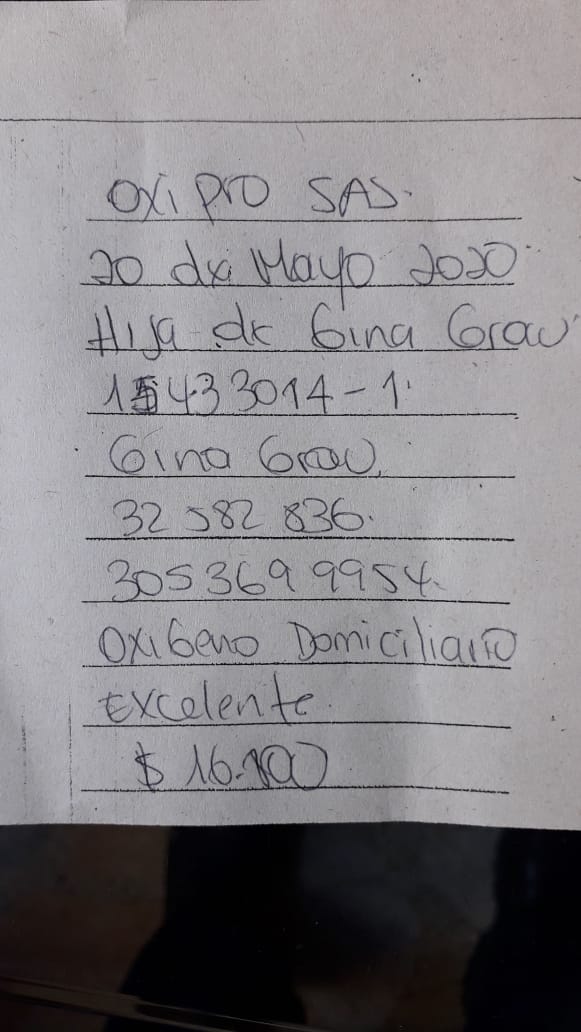 Oxi pro SAS.
20 de Mayo 2020
Hija de Gina Grau
15433014-1
Gina Grau
32 582 836.
305 369 9954.
Oxigeno Domiciliario
Excelente.
$ 16.100